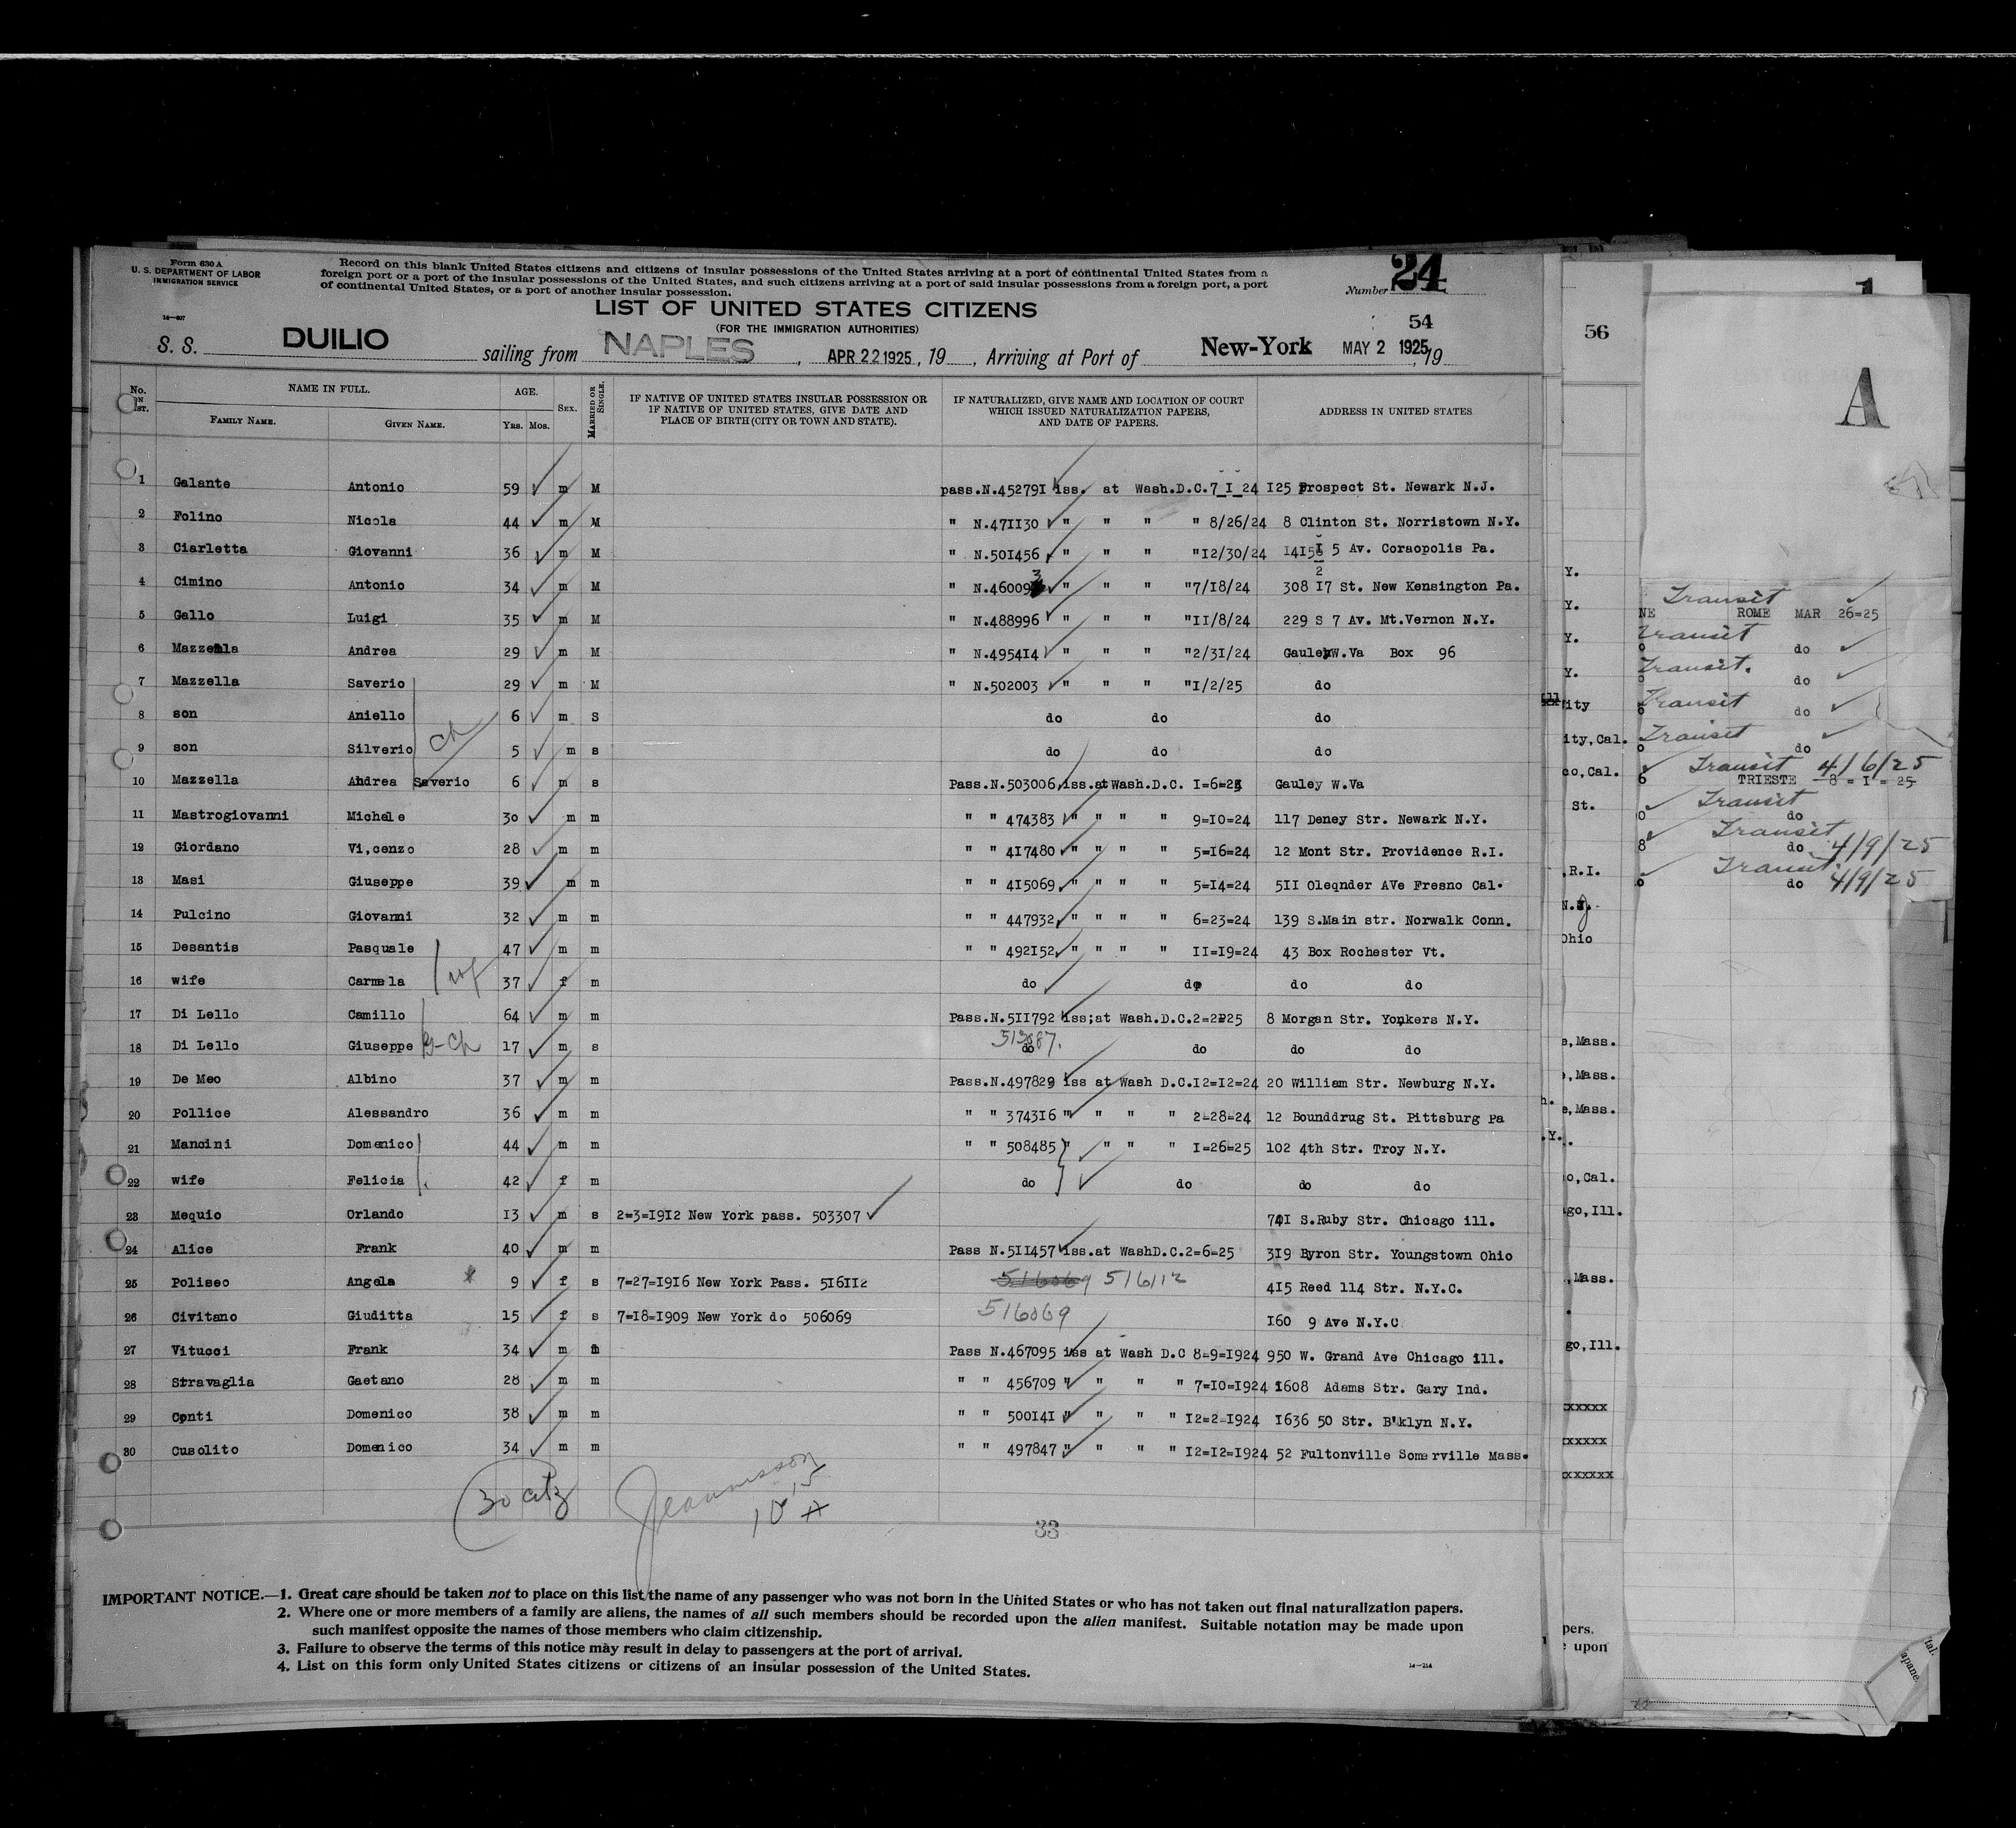 Form 630 A
U. S. DEPARTMENT OF LABOR
IMMIGRATION SERVICE
14—807
Record on this blank United States citizens and citizens of insular possessions of the United States arriving at a port of continental United States from a
foreign port or a port of the insular possessions of the United States, and such citizens arriving at a port of said insular possessions from a foreign port, a port
of continental United States, or a port of another insular possession.
Number 24
LIST OF UNITED STATES CITIZENS
(FOR THE IMMIGRATION AUTHORITIES)
54
S. S. DUILIO sailing from NAPLES, APR 22 1925, 19 , Arriving at Port of New-York MAY 2 1925, 19
No. ON LIST. NAME IN FULL. AGE. SEX. MARRIED OR SINGLE. IF NATIVE OF UNITED STATES INSULAR POSSESSION OR IF NATIVE OF UNITED STATES, GIVE DATE AND PLACE OF BIRTH (CITY OR TOWN AND STATE). IF NATURALIZED, GIVE NAME AND LOCATION OF COURT WHICH ISSUED NATURALIZATION PAPERS, AND DATE OF PAPERS. ADDRESS IN UNITED STATES
FAMILY NAME. GIVEN NAME. Yrs. Mos.
1 Galante Antonio 59 m M pass.N.452791 iss. at Wash.D.C.7_I_24 125 Prospect St. Newark N.J.
2 Folino Nicola 44 m M " N.471130 " " " " 8/26/24 8 Clinton St. Norristown N.Y.
3 Ciarletta Giovanni 36 m M " N.501456 " " " "12/30/24 1415 5 Av. Coraopolis Pa.
4 Cimino Antonio 34 m M " N.460093 " " " "7/18/24 308 17 St. New Kensington Pa.
5 Gallo Luigi 35 m M " N.488996 " " " "11/8/24 229 S 7 Av. Mt.Vernon N.Y.
6 Mazzella Andrea 29 m M " N.495414 " " " "2/31/24 Gauley W.Va Box 96
7 Mazzella Saverio 29 m M " N.502003 " " " "1/2/25 do
8 son Aniello 6 m S do do do
9 son Silverio 5 m s do do do
ch
10 Mazzella Andrea Saverio 6 m s Pass.N.503006 iss.at Wash.D.C. I=6=25 Gauley W.Va
11 Mastrogiovanni Michele 30 m m " " 474383 " " " " 9=10=24 117 Deney Str. Newark N.Y.
12 Giordano Vi,cenzo 28 m m " " 417480 " " " " 5=16=24 12 Mont Str. Providence R.I.
13 Masi Giuseppe 39 m m " " 415069 " " " " 5=14=24 511 Oleqnder AVe Fresno Cal.
14 Pulcino Giovanni 32 m m " " 447932 " " " " 6=23=24 139 S.Main str. Norwalk Conn.
15 Desantis Pasquale 47 m m " " 492152 " " " " 11=19=24 43 Box Rochester Vt.
16 wife Carmela wf 37 f m do do do do
17 Di Lello Camillo 64 m m Pass.N.511792 iss;at Wash.D.C.2=2 25 8 Morgan Str. Yonkers N.Y.
18 Di Lello Giuseppe G-Ch 17 m s do do do do
19 De Meo Albino 37 m m Pass.N.497829 iss at Wash D.C.12=12=24 20 William Str. Newburg N.Y.
20 Pollice Alessandro 36 m m " " 374316 " " " " 2=28=24 12 Bounddrug St. Pittsburg Pa
21 Mancini Domenico 44 m m " " 508485 " " " " I=26=25 102 4th Str. Troy N.Y.
22 wife Felicia 42 f m do do do do
23 Mequio Orlando 13 m s 2=3=1912 New York pass. 503307 741 S.Ruby Str. Chicago ill.
24 Alice Frank 40 m m Pass N.511457 iss.at WashD.C.2=6=25 319 Byron Str. Youngstown Ohio
25 Poliseo Angela 9 f s 7=27=1916 New York Pass. 516112 516069 516112 415 Reed 114 Str. N.Y.C.
26 Civitano Giuditta 15 f s 7=18=1909 New York do 506069 516069 160 9 Ave N.Y.C
27 Vitucci Frank 34 m m Pass N.467095 iss at Wash D.C 8=9=1924 950 W. Grand Ave Chicago ill.
28 Stravaglia Gaetano 28 m m " " 456709 " " " " 7=10=1924 1608 Adams Str. Gary Ind.
29 Conti Domenico 38 m m " " 500141 " " " " 12=2=1924 1636 50 Str. B'klyn N.Y.
30 Cusolito Domenico 34 m m " " 497847 " " " " 12=12=1924 52 Fultonville Somerville Mass.
30 citz
33
IMPORTANT NOTICE.—1. Great care should be taken not to place on this list the name of any passenger who was not born in the United States or who has not taken out final naturalization papers.
2. Where one or more members of a family are aliens, the names of all such members should be recorded upon the alien manifest. Suitable notation may be made upon
such manifest opposite the names of those members who claim citizenship.
3. Failure to observe the terms of this notice may result in delay to passengers at the port of arrival.
4. List on this form only United States citizens or citizens of an insular possession of the United States.
14—214
56
Y.
Y.
Y.
Y.
ity
ity, Cal.
co, Cal.
St.
R.I.
Ohio
e, Mass.
, Mass.
e, Mass.
.Y.
o, Cal.
go, Ill.
, Mass.
go, Ill.
xxxxx
xxxxx
xxxxxx
pers.
upon
A
Transit
NE ROME MAR 26=25
Transit
do
Transit.
do
Transit
do
Transit
do
Transit 4/6/25
TRIESTE 8 = I = 25
Transit
do
Transit
do 4/9/25
Transit
do 4/9/25